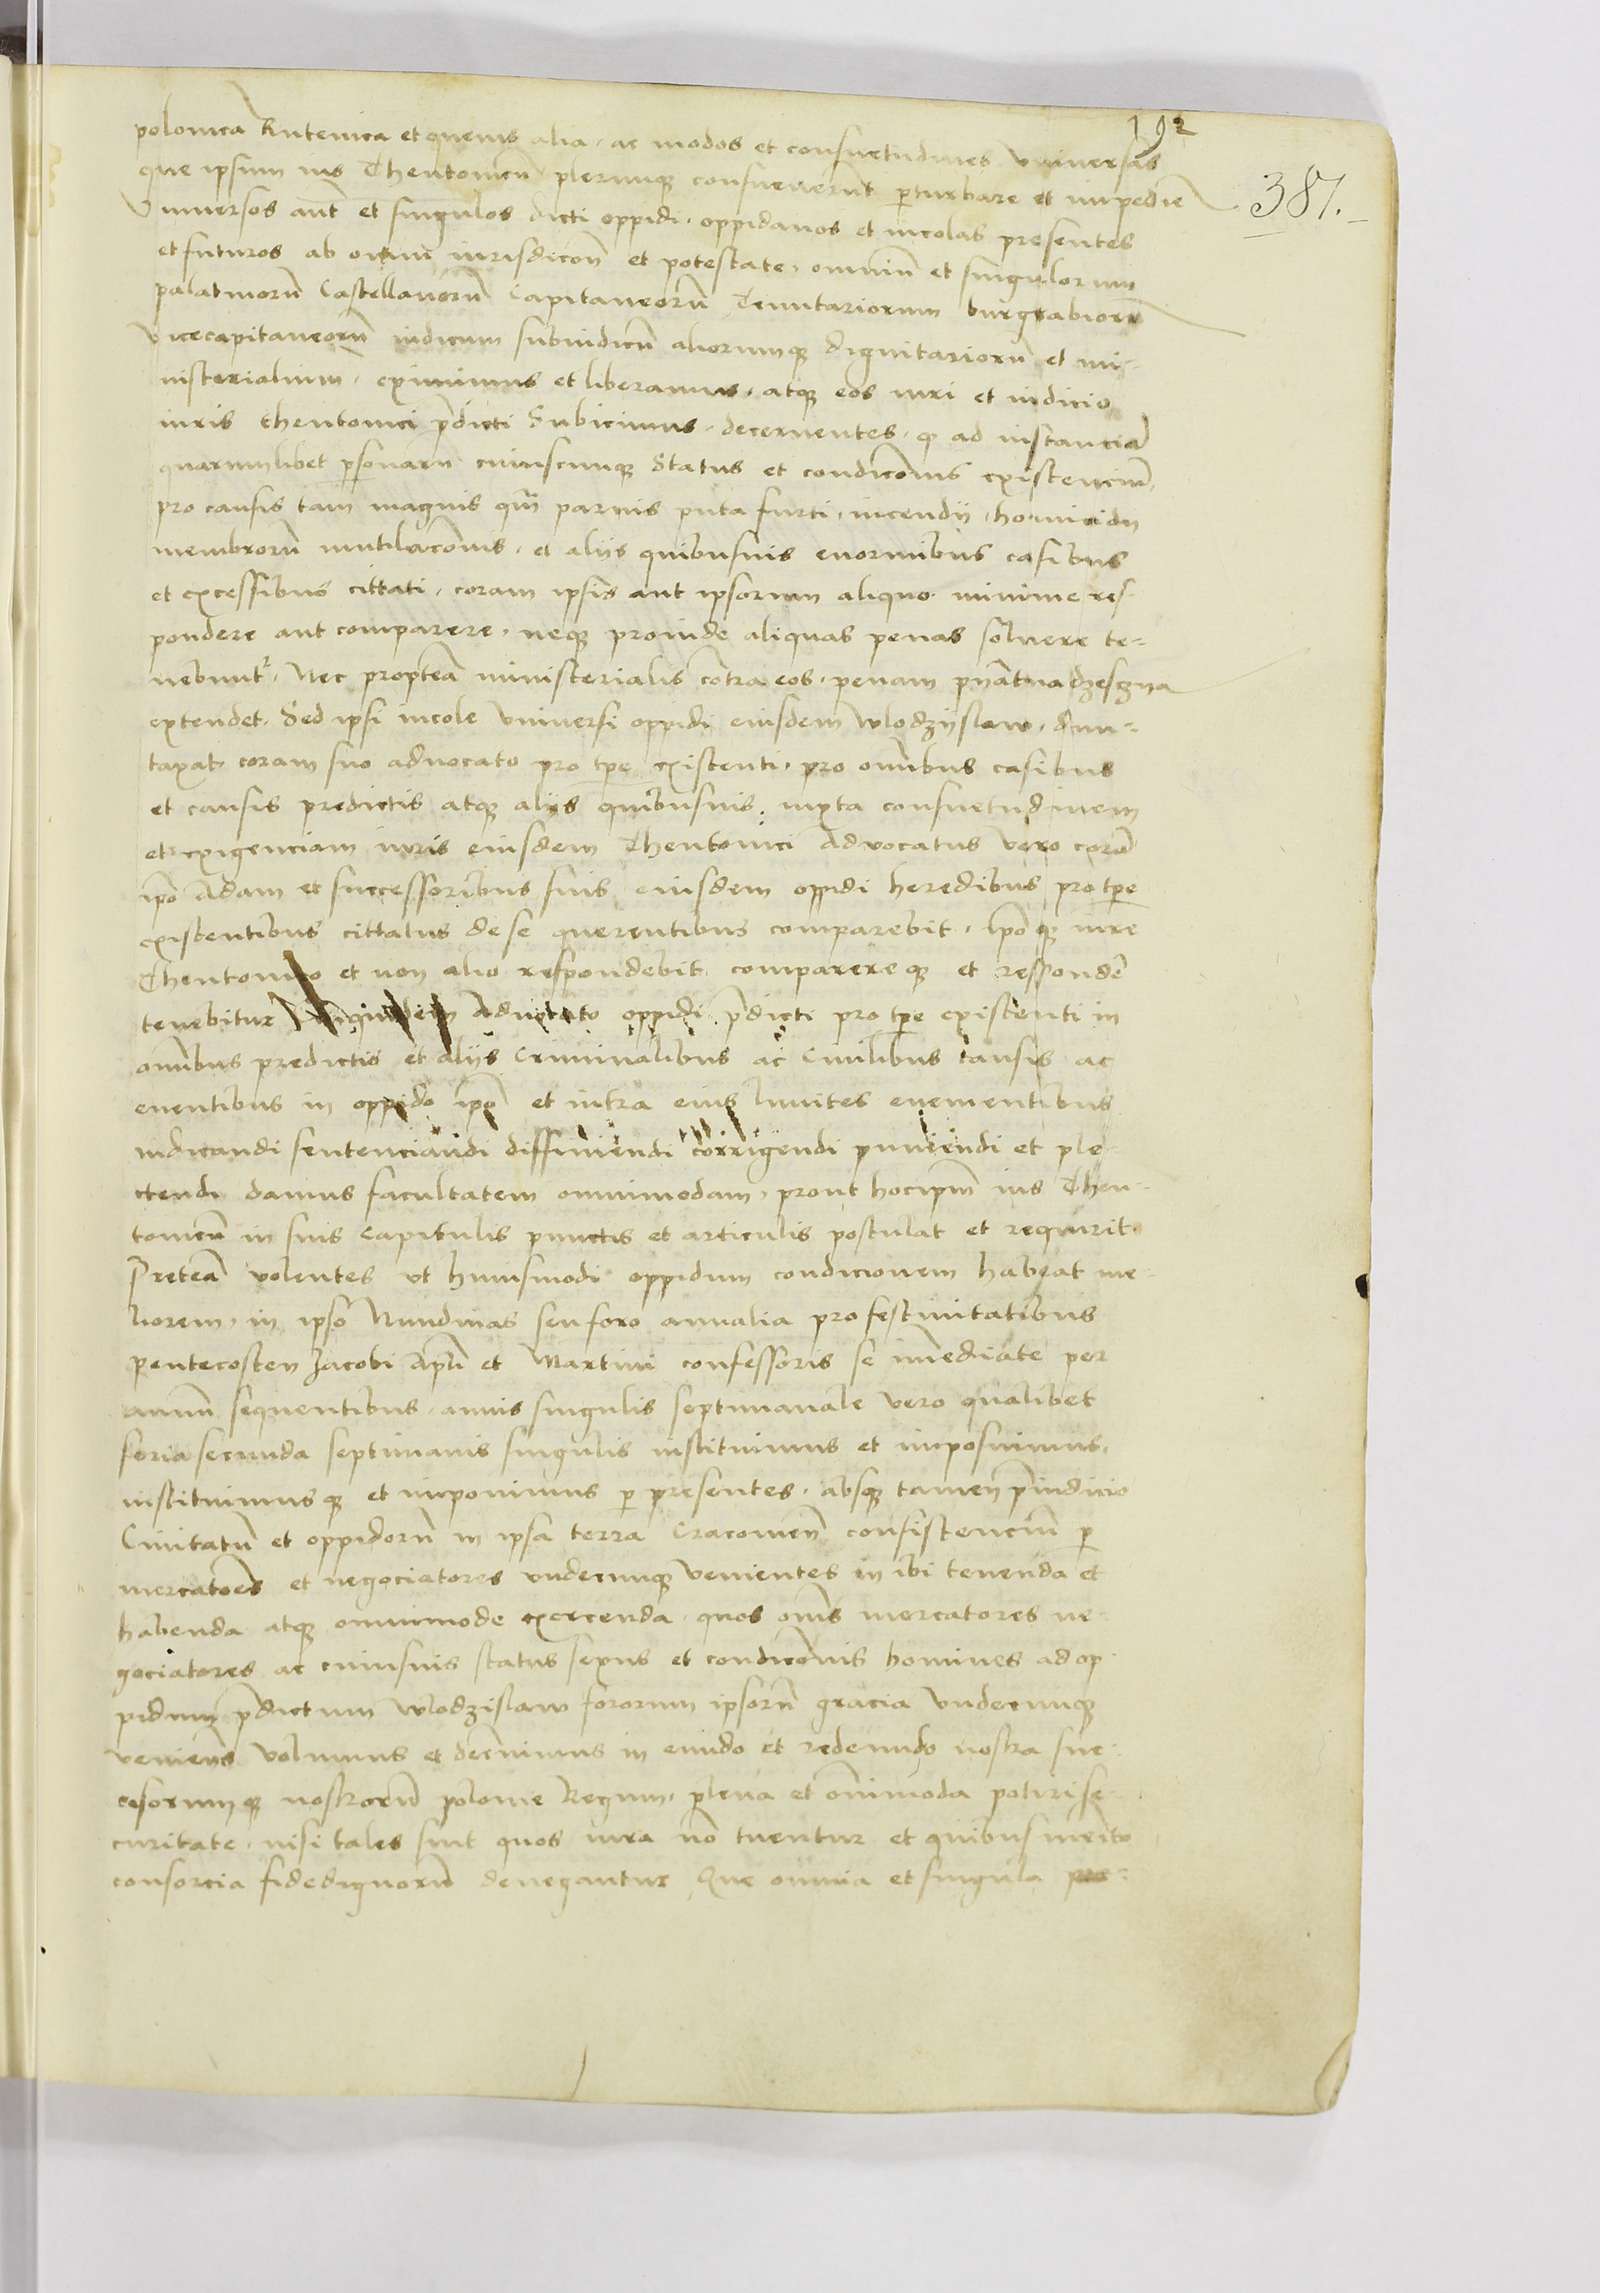 192
polonica Rutenica et quevis alia, ac modos et consuetudines vniversas
que ipsum ius Theutonicū plerumqꝫ consueverūt pturbare et impedire
387.
Vniversos aūt et singulos dicti oppidi, oppidanos et incolas presentes
et futuros ab omni iurisdiccōn et potestate, omniū et singulorum
palatinorū Castellanorū Capitaneorū Tenutariorum burgrabiorū
vicecapitaneorū iudicum subiudicū aliorumqꝫ dignitariorū et mi-
nisterialium, eximimus et liberamus, atqꝫ eos iuri et iudicio
iuris theutonici pdicti Subicimus, decernentes, ꝙ ad instanciā
quarumlibet psonarū cuiuscunqꝫ Status et condicōnis existenciū,
pro causis tam magnis qm̄ parvis puta furti, incendij, homicidij
membrorū mutilacōnis, et alijs quibusuis enormibus casibus
et excessibus cittati, coram ipsis aut ipsorum aliquo minime res-
pondere aut comparere, neqꝫ proinde aliquas penas soluere te-
nebunt, Nec proptea ministerialis cōtra eos, penam pyatnadzesgna
extendet, Sed ipsi incole vniversi oppidi eiusdem Wlodzyslaw, dun-
taxat coram suo advocato pro tpe existenti, pro omībus casibus
et causis predictis atqꝫ alijs quibusuis, iuxta consuetudinem
et exigenciam iuris eiusdem Theutonici Advocatus vero corā
ipo Adam et successoribus suis eiusdem oppidi heredibus pro tpe
existentibus cittatus de se querentibus comparebit, Ipoqꝫ iure
Theutonico et non alio respondebit comparereqꝫ et respondē
tenebitur Advocato oppidi pdicti pro tpe existenti in
omībus predictis et alijs Criminalibus ac Civilibus causis ac
eventibus in oppido ipo et intra eius limites evenientibus
iudicandi sentenciandi diffiniendi corrigendi puniendi et ple-
ctendi damus facultatem omnimodam, prout hoc ipm̄ ius Theu-
tonicū in suis Capitulis punctis et articulis postulat et requirit
Pretea volentes vt huiusmodi oppidum condicionem habeat me-
liorem, in ipso Nundinas seu foro annalia pro festivitatibus
Pentecosten Jacobi Apli et Martini confessoris se immediate per
annū sequentibus, annis singulis septimanale vero qualibet
feria secunda septimanis singulis instituimus et imposuimus,
instituimusqꝫ et imponimus p presentes, absqꝫ tamen piudicio
Civitatū et oppidorū in ipsa terra Cracovien̄ consistenciū p
mercatoēs et negociatores vndecunqꝫ venientes in ibi tenenda et
habenda atqꝫ omnimode exercenda, quos om̄s mercatores ne-
gociatores ac cuiusuis status sexus et condicōnis homines ad op-
pidum pdictum Wlodzislaw fororum ipsorū gracia vndecunqꝫ
veniens volumus et decnimus in eundo et redeundo nostra suc-
cesorumqꝫ nostrorū polonie Regum, plena et omīmoda potiri se-
curitate, nisi tales sint quos iura nō tuentur et quibus merito
consorcia fidedignorū denegantur Que omnia et singula